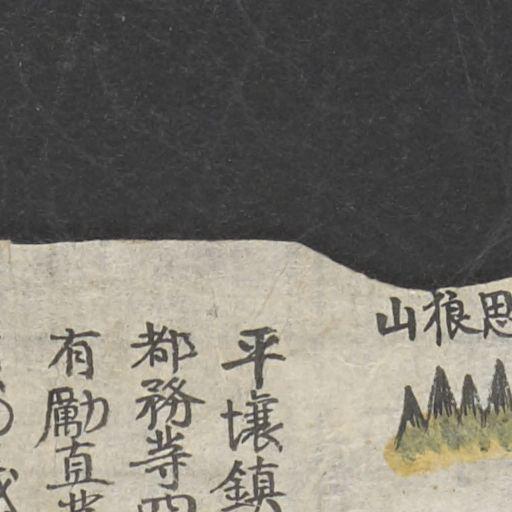 思狼山
平壤鎮
都務等四
有勵直